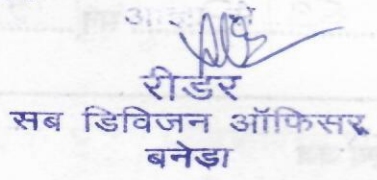 आज्ञा से
रीडर
सब डिविजन ऑफिसर
बनेड़ा